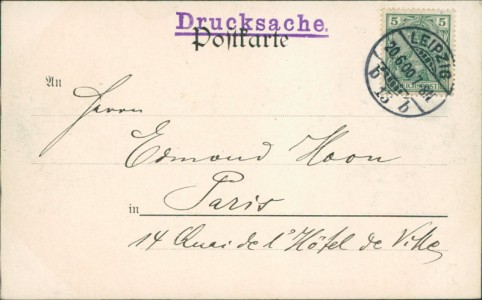 Drucksache.
Postkarte
5 5
LEIPZIG
20.6.00
b 13 b
An
Herrn
Edmond Hoon
Paris
in
14 Quai de l'Hôtel de Ville